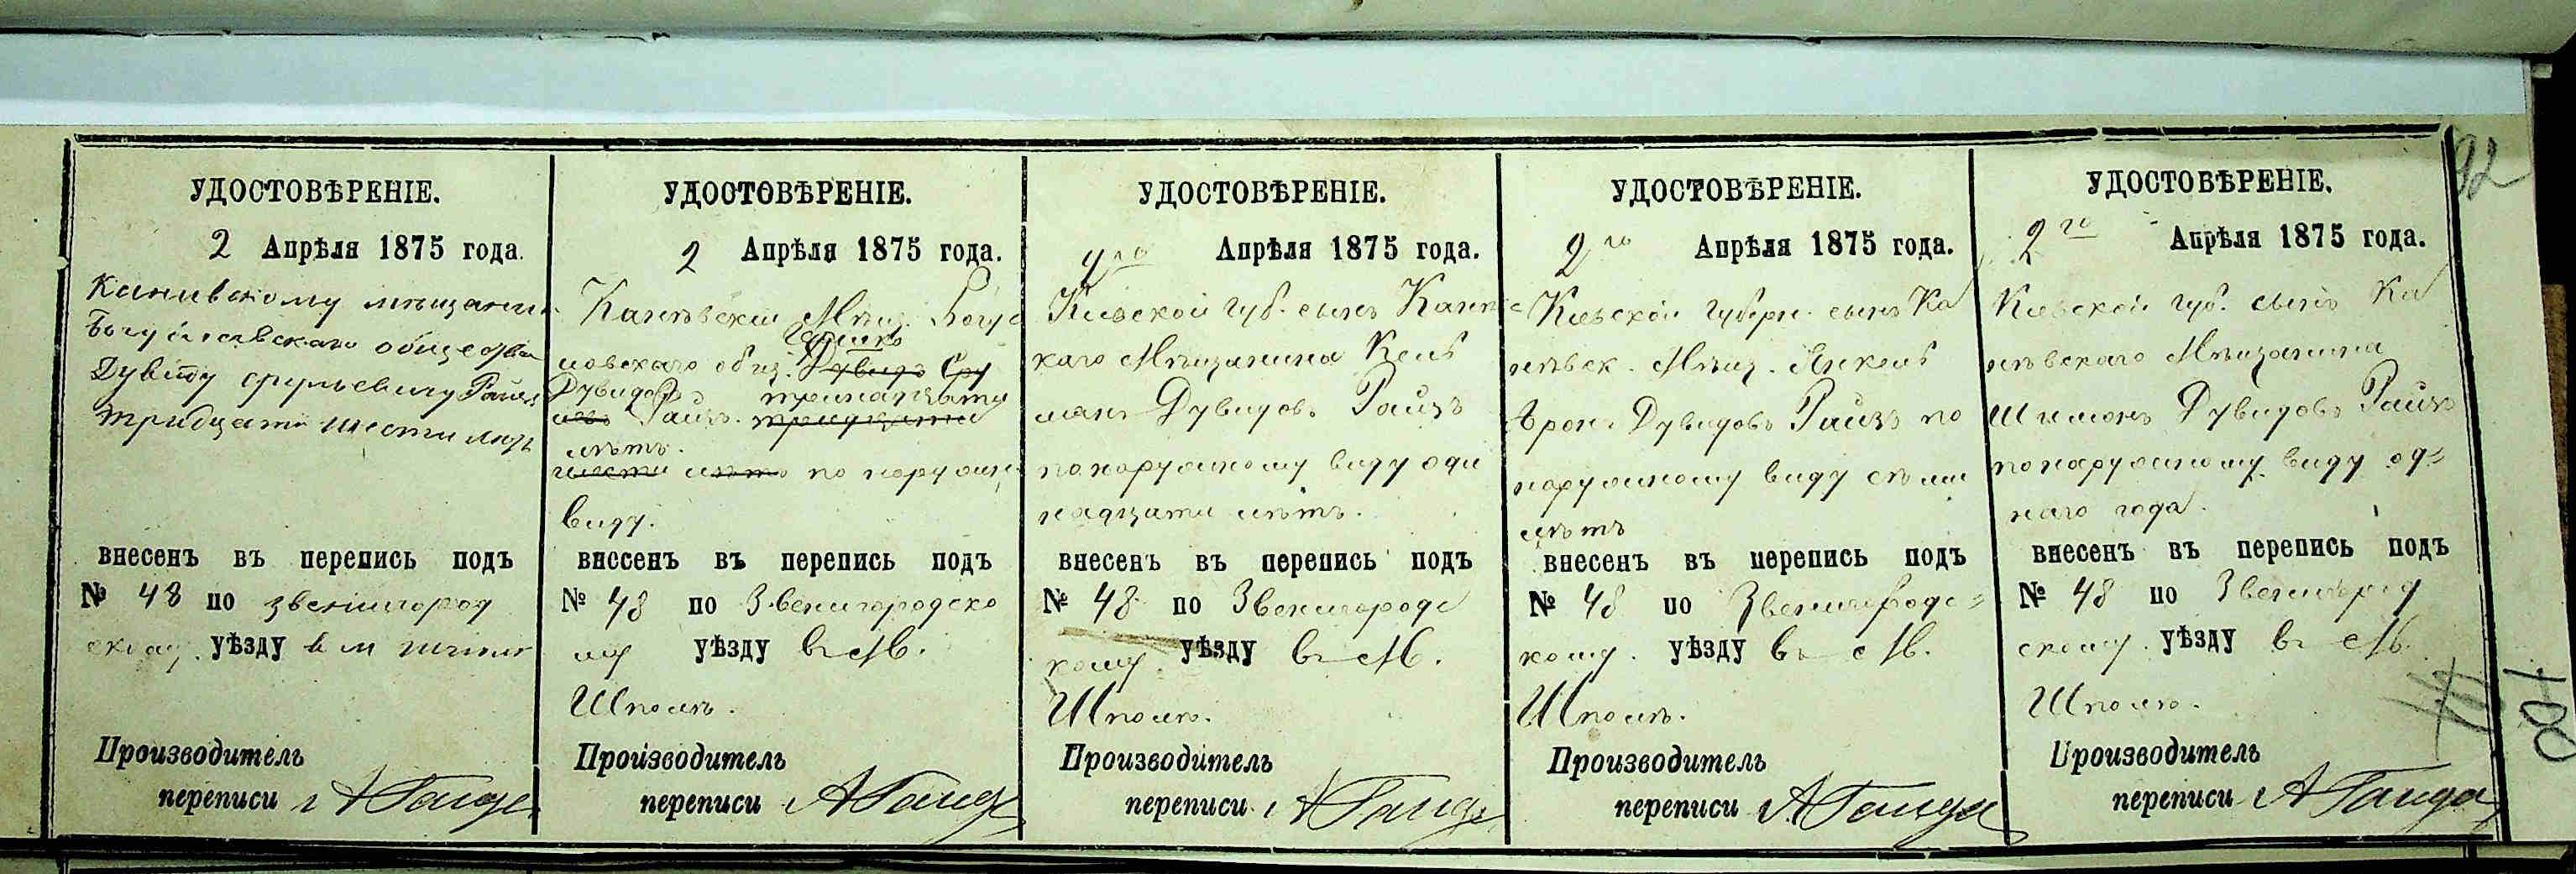 92
УДОСТОВѢРЕНІЕ.
2 Апрѣля 1875 года.
Каневскому мѣщани
Богуславскаго общества
Дувиду Срульевичу Райзъ
тридцати шести лѣтъ
внесенъ въ перепись подъ
№ 48 по звенигород
скому уѣзду в м шполѣ
Производитель
переписи А Ганде
УДОСТОВѢРЕНІЕ.
2 Апрѣля 1875 года.
Каневскій Мѣщ. Богус
Гершко
лавскаго общ. Дувидъ Сру
Дувидовъ тринадцати
левъ Райзъ. тридцати
лѣтъ.
шести лѣтъ по наружн
виду.
внесенъ въ перепись подъ
№ 48 по Звенигородско
му уѣзду въ М.
Шполѣ.
Производитель
переписи А Ганд
УДОСТОВѢРЕНІЕ.
2го Апрѣля 1875 года.
Кіевской губ. сынъ Канев
каго Мѣщанина Кель
манъ Дувидовъ Райзъ
по наружному виду оди
надцати лѣтъ.
внесенъ въ перепись подъ
№ 48 по Звенигородс
кому. уѣзду въ М.
Шполѣ.
Производитель
переписи А Ганд
УДОСТОВѢРЕНІЕ.
2го Апрѣля 1875 года.
Кіевской Губерн. сынъ Ка
нѣвск. Мѣщ. Янкель
Аронъ Дувидовъ Райзъ по
наружному виду семи
лѣтъ
внесенъ въ перепись подъ
№ 48 по Звенигородс=
кому. уѣзду въ М.
Шполѣ.
Производитель
переписи А Ганда
УДОСТОВѢРЕНІЕ.
2го Апрѣля 1875 года.
Кіевской губ. сынъ Ка
нѣвскаго Мѣщанина
Шимонъ Дувидовъ Райзъ
по наружному виду од=
наго года.
внесенъ въ перепись подъ
№ 48 по Звенигород
скому. уѣзду въ М.
Шполѣ.
Производитель
переписи А Ганда